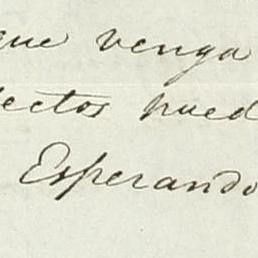 que venga
fectos pued
Esperando